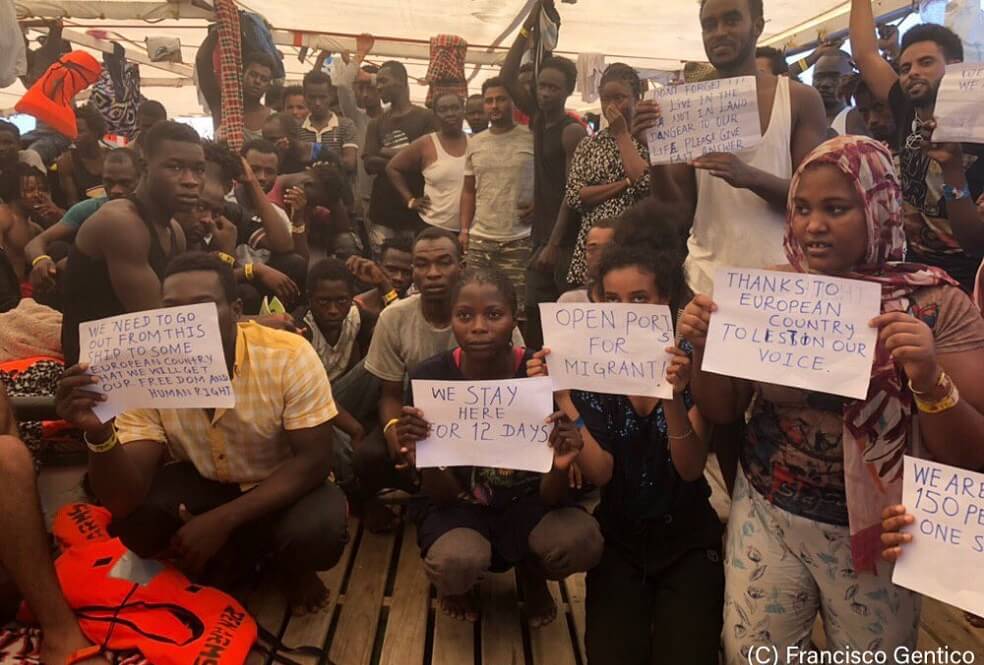 DON'T FORGET
LIVE IN THE
NOT IN LAND
DANGEAR TO OUR
LIFE PLEASE GIVE
FAST ANSWER
WE
WE NEED TO GO
OUT FROM THIS
SHIP TO SOME
EUROPEAN COUNTRY
THAT WE WILL GET
OUR FREEDOM AND
HUMAN RIGHT
WE STAY
HERE
FOR 12 DAYS
OPEN PORT
S
FOR
MIGRANT!
THANKS TO
EUROPEAN
COUNTRY
TO LESTION OUR
VOICE.
WE ARE
150 PE
ONE S
ARMS
(C) Francisco Gentico